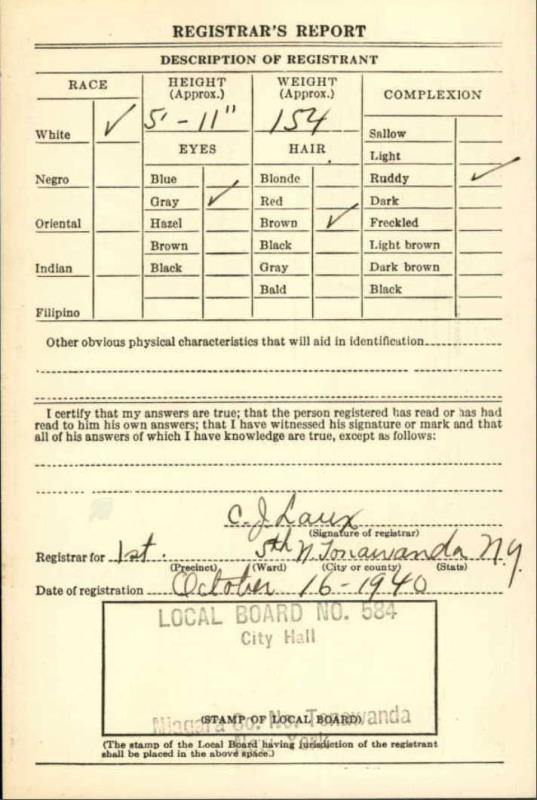 REGISTRAR'S REPORT
DESCRIPTION OF REGISTRANT
RACE
HEIGHT (Approx.)
WEIGHT (Approx.)
COMPLEXION
5' - 11"
154
White ✓
Negro
Oriental
Indian
Filipino
EYES
Blue
Gray ✓
Hazel
Brown
Black
HAIR
Blonde
Red
Brown ✓
Black
Gray
Bald
Sallow
Light
Ruddy ✓
Dark
Freckled
Light brown
Dark brown
Black
Other obvious physical characteristics that will aid in identification
I certify that my answers are true; that the person registered has read or has had
read to him his own answers; that I have witnessed his signature or mark and that
all of his answers of which I have knowledge are true, except as follows:
C. J. Laux
(Signature of registrar)
Registrar for 1st. 5th N Tonawanda N.Y.
(Precinct) (Ward) (City or county) (State)
Date of registration October 16-1940
LOCAL BOARD NO. 584
City Hall
Niagara Co. No. Tonawanda
(STAMP OF LOCAL BOARD)
New York
(The stamp of the Local Board having jurisdiction of the registrant
shall be placed in the above space.)